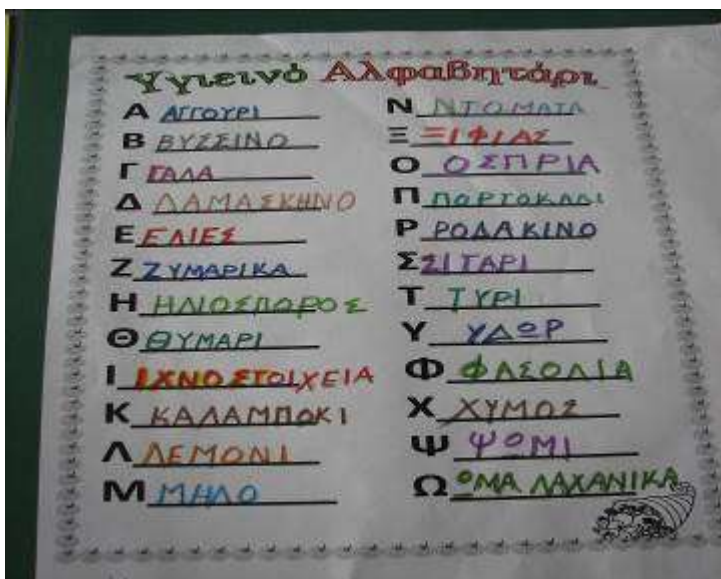 Υγιεινό Αλφαβητάρι
Α ΑΓΓΟΥΡΙ
Β ΒΥΣΣΙΝΟ
Γ ΓΑΛΑ
Δ ΔΑΜΑΣΚΗΝΟ
Ε ΕΛΙΕΣ
Ζ ΖΥΜΑΡΙΚΑ
Η ΗΛΙΟΣΠΟΡΟΣ
Θ ΘΥΜΑΡΙ
Ι ΙΧΝΟΣΤΟΙΧΕΙΑ
Κ ΚΑΛΑΜΠΟΚΙ
Λ ΛΕΜΟΝΙ
Μ ΜΗΛΟ
Ν ΝΤΟΜΑΤΑ
Ξ ΞΙΦΙΑΣ
Ο ΟΣΠΡΙΑ
Π ΠΟΡΤΟΚΑΛΙ
Ρ ΡΟΔΑΚΙΝΟ
Σ ΣΙΤΑΡΙ
Τ ΤΥΡΙ
Υ ΥΔΩΡ
Φ ΦΑΣΟΛΙΑ
Χ ΧΥΜΟΣ
Ψ ΨΩΜΙ
Ω ΩΜΑ ΛΑΧΑΝΙΚΑ